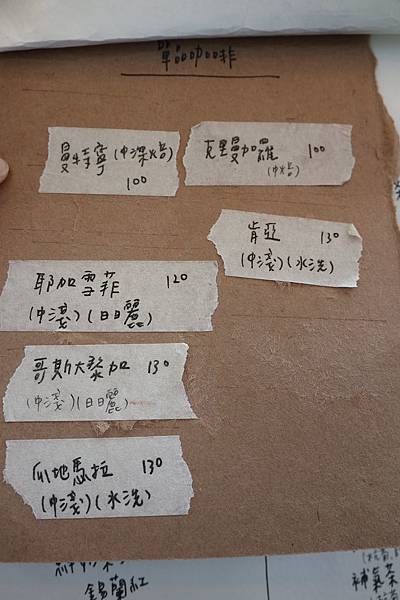 單品咖啡
曼特寧(中深焙)
100
克里曼加羅 100
(中焙)
肯亞 130
(中淺)(水洗)
耶加雪菲 120
(中淺)(日曬)
哥斯大黎加 130
(中淺)(日曬)
瓜地馬拉 130
(中淺)(水洗)
錫蘭紅
補氣茶